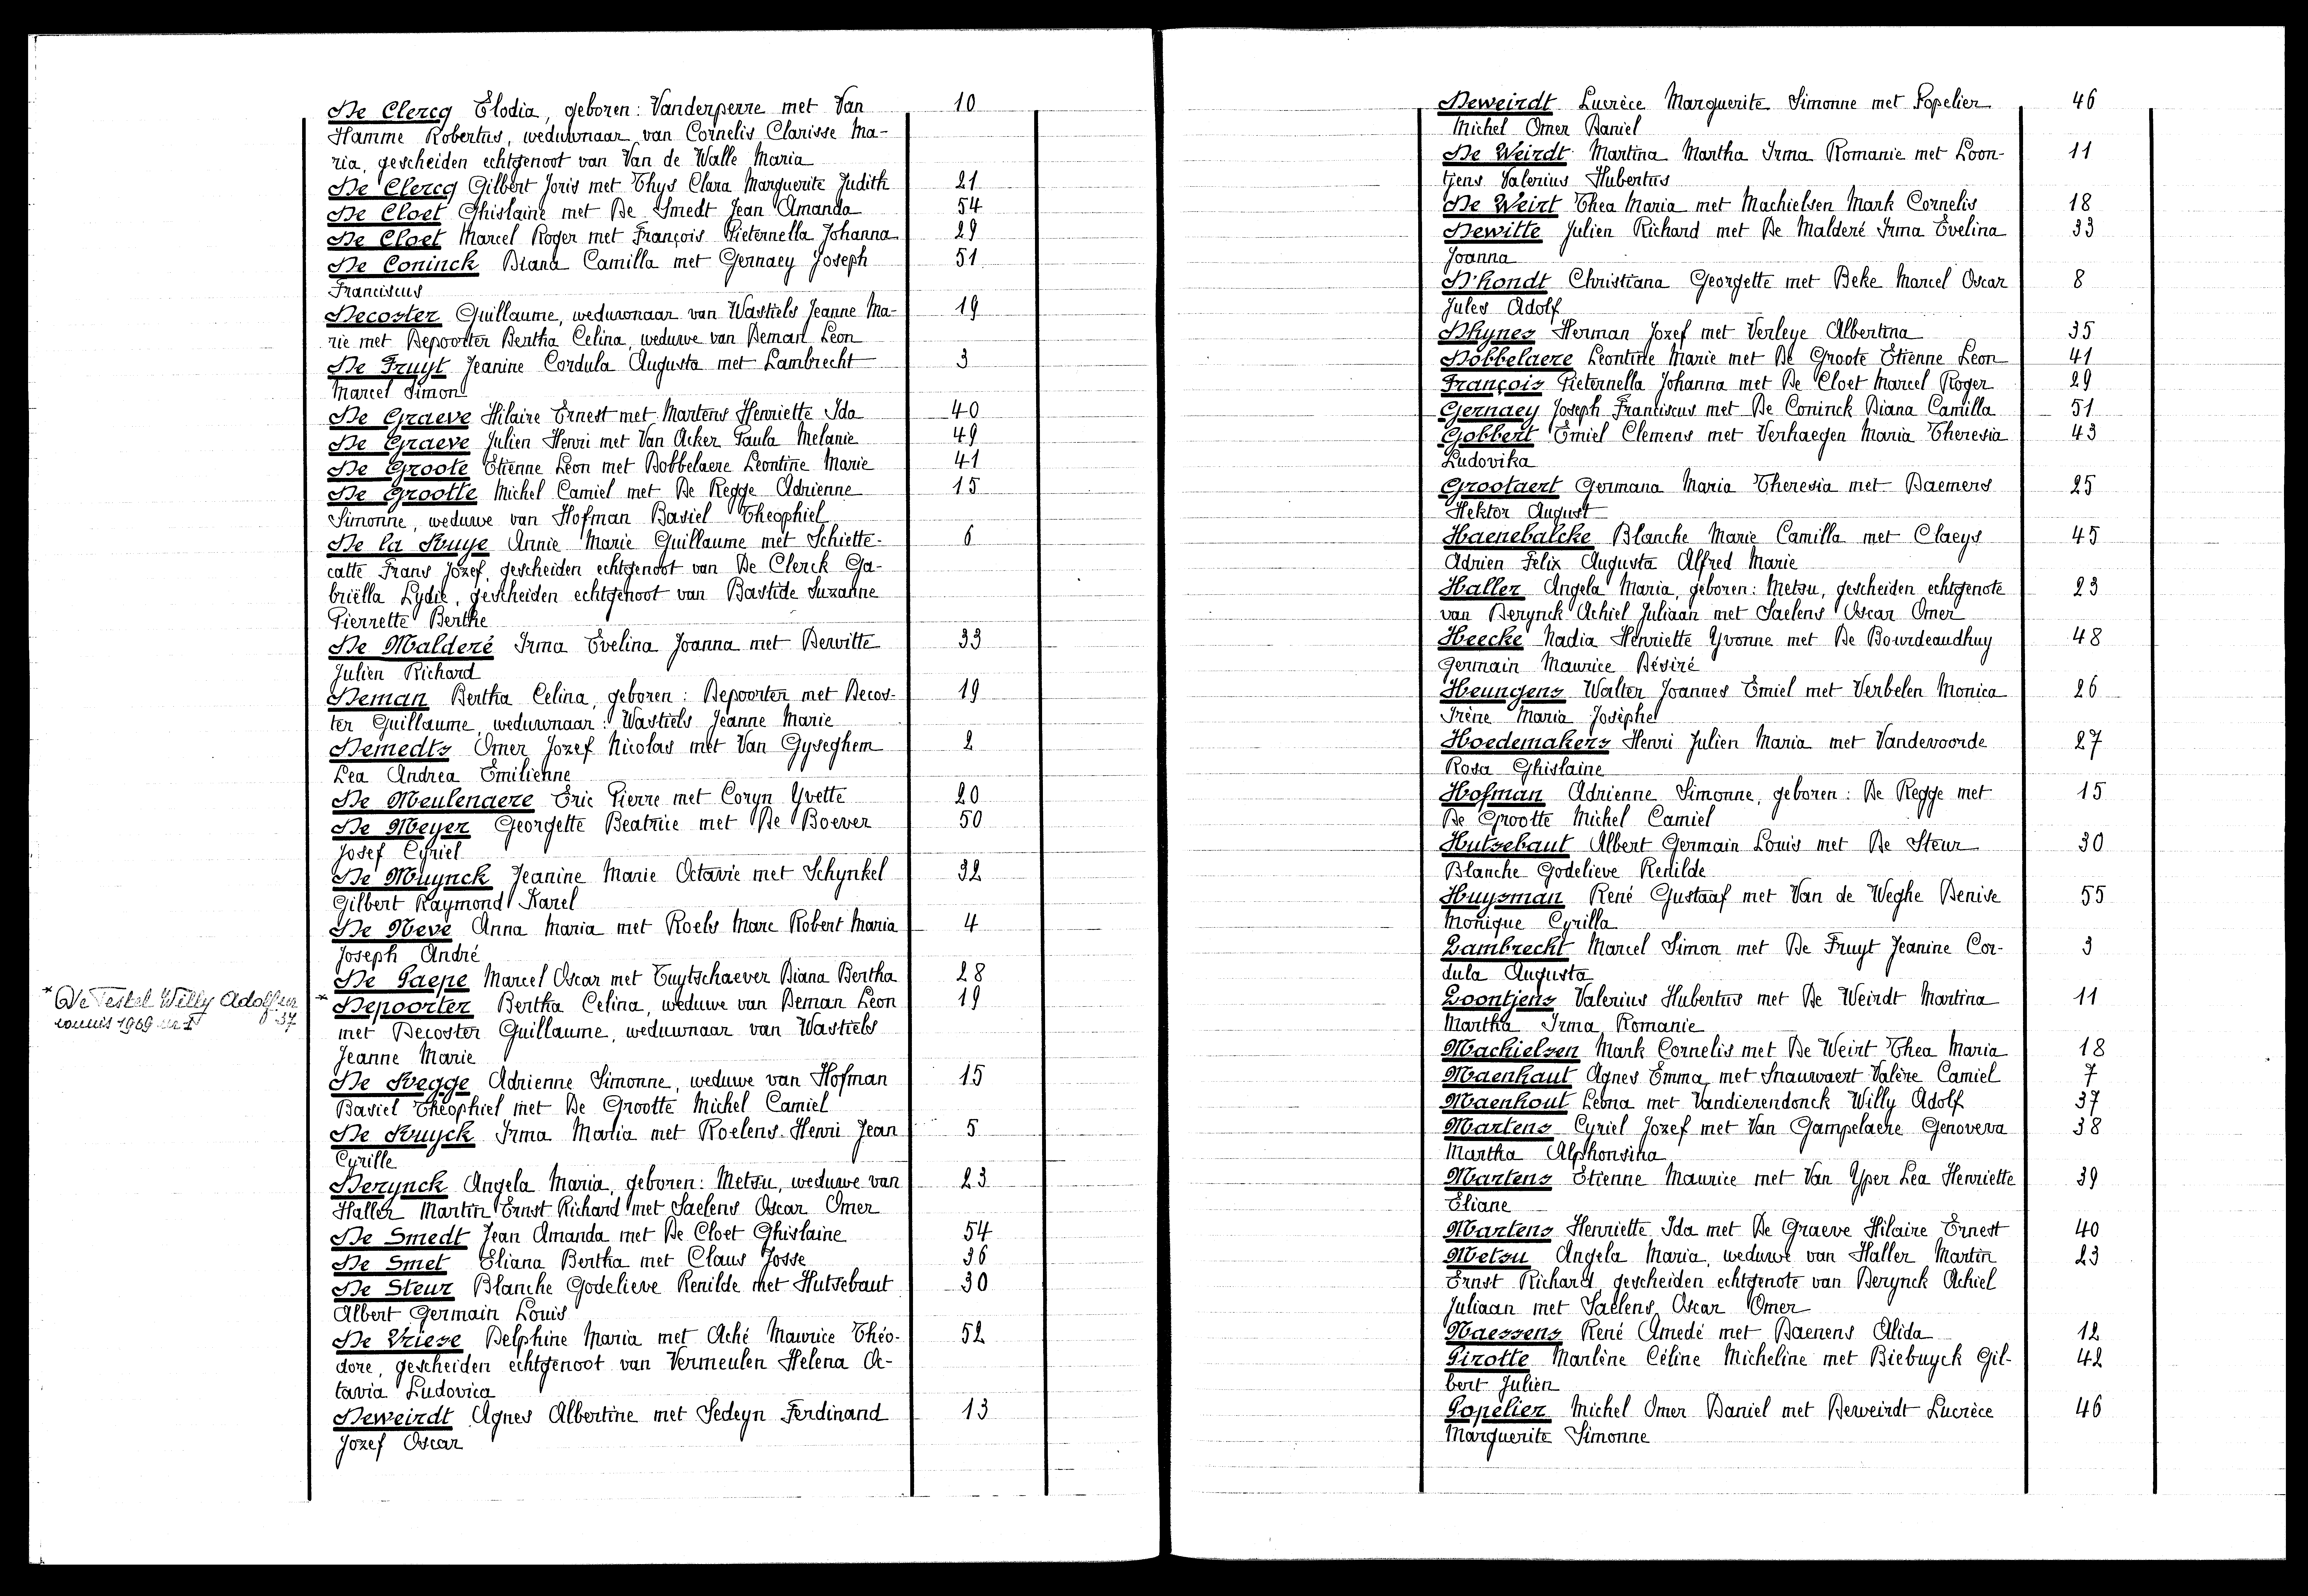 De Clercq Elodia, geboren: Vanderperre met Van 10
Hamme Robertus, weduwnaar van Cornelis Clarisse Ma-
ria, gescheiden echtgenoot van Van de Walle Maria
De Clercq Gilbert Joris met Thys Clara Marguerite Judith 21
De Cloet Ghislaine met De Smedt Jean Amanda 54
De Cloet Marcel Roger met François Pieternella Johanna 29
De Coninck Diana Camilla met Gernaey Joseph 51
Franciscus
Decoster Guillaume, weduwnaar van Wastiels Jeanne Ma- 19
rie met Depoorter Bertha Celina, weduwe van Deman Leon
De Fruyt Jeanine Cordula Augusta met Lambrecht 3
Marcel Simon
De Graeve Hilaire Ernest met Martens Henriette Ida 40
De Graeve Julien Henri met Van Acker Paula Melanie 49
De Groote Etienne Leon met Dobbelaere Leontine Marie 41
De Grootte Michel Camiel met De Regge Adrienne 15
Simonne, weduwe van Hofman Basiel Theophiel
De la Ruye Annie Marie Guillaume met Schiette- 6
catte Frans Jozef, gescheiden echtgenoot van De Clerck Ga-
briëlla Lydie, gescheiden echtgenoot van Bastide Suzanne
Pierrette Berthe
De Malderé Irma Evelina Joanna met Dewitte 33
Julien Richard
Deman Bertha Celina, geboren: Depoorter met Decos- 19
ter Guillaume, weduwnaar: Wastiels Jeanne Marie
Demedts Omer Jozef Nicolas met Van Gyseghem 2
Lea Andrea Emilienne
De Meulenaere Eric Pierre met Coryn Yvette 20
De Meyer Georgette Beatrice met De Boever 50
Josef Cyriel
De Muynck Jeanine Marie Octavie met Schynkel 32
Gilbert Raymond Karel
De Neve Anna Maria met Roels Marc Robert Maria 4
Joseph André
De Paepe Marcel Oscar met Tuytschaever Diana Bertha 28
* De Teskel Willy Adolf
vonnis 1969 37
* Depoorter Bertha Celina, weduwe van Deman Leon 19
met Decoster Guillaume, weduwnaar van Wastiels
Jeanne Marie
De Regge Adrienne Simonne, weduwe van Hofman 15
Basiel Théophiel met De Grootte Michel Camiel
De Ruyck Irma Maria met Roelens Henri Jean 5
Cyrille
Derynck Angela Maria, geboren: Metsu, weduwe van 23
Haller Martin Ernst Richard met Saelens Oscar Omer
De Smedt Jean Amanda met De Cloet Ghislaine 54
De Smet Eliana Bertha met Claus Josse 36
De Steur Blanche Godelieve Renilde met Hutsebaut 30
Albert Germain Louis
De Vriese Delphine Maria met Aché Maurice Théo- 52
dore, gescheiden echtgenoot van Vermeulen Helena Oc-
tavia Ludovica
Deweirdt Agnes Albertine met Sedeyn Ferdinand 13
Jozef Oscar
Deweirdt Lucrèce Marguerite Simonne met Popelier 46
Michel Omer Daniel
De Weirdt Martina Martha Irma Romanie met Loon- 11
tjens Valerius Hubertus
De Weirt Thea Maria met Machielsen Mark Cornelis 18
Dewitte Julien Richard met De Malderé Irma Evelina 33
Joanna
D'hondt Christiana Georgette met Beke Marcel Oscar 8
Jules Adolf
Dhynes Herman Jozef met Verleye Albertina 35
Dobbelaere Leontine Marie met De Groote Etienne Leon 41
François Pieternella Johanna met De Cloet Marcel Roger 29
Gernaey Joseph Franciscus met De Coninck Diana Camilla 51
Gobbert Emiel Clemens met Verhaegen Maria Theresia 43
Ludovika
Grootaert Germana Maria Theresia met Daemers 25
Hektor August
Haenebalcke Blanche Marie Camilla met Claeys 45
Adrien Felix Augusta Alfred Marie
Haller Angela Maria, geboren: Metsu, gescheiden echtgenote 23
van Derynck Achiel Juliaan met Saelens Oscar Omer
Heecke Nadia Henriette Yvonne met De Bourdeaudhuy 48
Germain Maurice Désiré
Heungens Walter Joannes Emiel met Verbelen Monica 26
Irène Maria Josèphe
Hoedemakers Henri Julien Maria met Vandevoorde 27
Rosa Ghislaine
Hofman Adrienne Simonne, geboren: De Regge met 15
De Grootte Michel Camiel
Hutsebaut Albert Germain Louis met De Steur 30
Blanche Godelieve Renilde
Huysman René Gustaaf met Van de Weghe Denise 55
Monique Cyrilla
Lambrecht Marcel Simon met De Fruyt Jeanine Cor- 3
dula Augusta
Loontjens Valerius Hubertus met De Weirdt Martina 11
Martha Irma Romanie
Machielsen Mark Cornelis met De Weirt Thea Maria 18
Maenhaut Agnes Emma met Snauwaert Valère Camiel 7
Maenhout Leona met Vandierendonck Willy Adolf 37
Martens Cyriel Jozef met Van Gampelaere Genoveva 38
Martha Alphonsina
Martens Etienne Maurice met Van Yper Lea Henriette 39
Eliane
Martens Henriette Ida met De Graeve Hilaire Ernest 40
Metsu Angela Maria, weduwe van Haller Martin 23
Ernst Richard, gescheiden echtgenote van Derynck Achiel
Juliaan met Saelens Oscar Omer
Naessens René Amedé met Daenens Alida 12
Pirotte Marlène Céline Micheline met Biebuyck Gil- 42
bert Julien
Popelier Michel Omer Daniel met Deweirdt Lucrèce 46
Marguerite Simonne